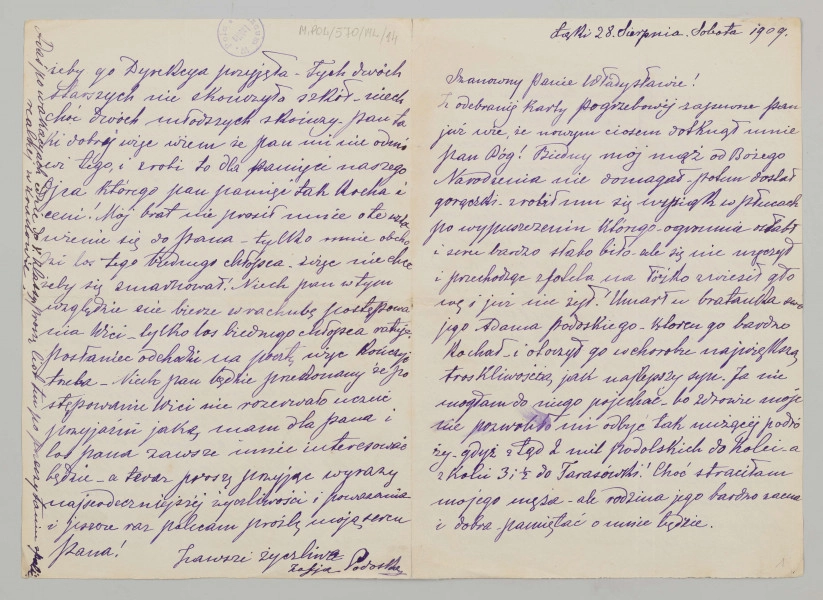 Łąki 28. Sierpnia. Sobota 1909.
Szanowny Panie Władysławie!
Z odebranej karty pogrzebowej zapewne pan
już wie, że nowym ciosem dotknął mnie
pan Bóg! Biedny mój mąż od Bożego
Narodzenia nie domagał - potem dostał
gorączki - zrobił mu się w płucach
po wypuszczeniu którego - ogromnie osłabł
i serce bardzo słabo biło - ale się nie męczył
i przechodząc z fotela na łóżko zwiesił gło
wę i już nie żył! Umarł u bratanka swo
jego Adama Podoskiego - którego bardzo
kochał - i otoczył go w chorobie największą
troskliwością, jak najlepszy syn. Ja nie
mogłam do niego pojechać - bo zdrowie moje
nie pozwoliło mi odbyć tak męczącej podró
ży - gdyż z tąd 2 mil podolskich do kolei - a
z kolei 3 i ½ do Tarasówki! Choć straciłam
mojego męża - ale rodzina jego bardzo zacna
i dobra - pamiętać o mnie będzie.
M.POL/570/ /14
żeby go Dyrekcya przyjęła - Tych dwóch
starszych nie skończyło szkół - niech
choć dwóch młodszych skończy - pan ta
ki dobry więc wiem że pan mi nie odmó
wi tego, i zrobi to dla pamięci naszego
Ojca którego pan pamięć tak kocha i
ceni. Mój brat nie prosił mnie o te
się do pana - tylko mnie obcho
dzi los tego biednego chłopca - więc nie chcę
żeby się zmarnował! Niech pan w tym
względzie nie bierze w rachubę postępowa
nia Wici - tylko los biednego chłopca ratuje.
Posłaniec odchodzi na pocztę więc kończyć
trzeba - Niech pan będzie przekonany że po
stępowanie Wici nie rozerwało uczuć
przyjaźni jaką mam dla pana i
los pana zawsze mnie interesować
będzie - a teraz proszę przyjąć wyrazy
najserdeczniejszej życzliwości i poważania
i jeszcze raz polecam prośbę moją sercu
pana!
Zawsze życzliwa
Zofja Podoska